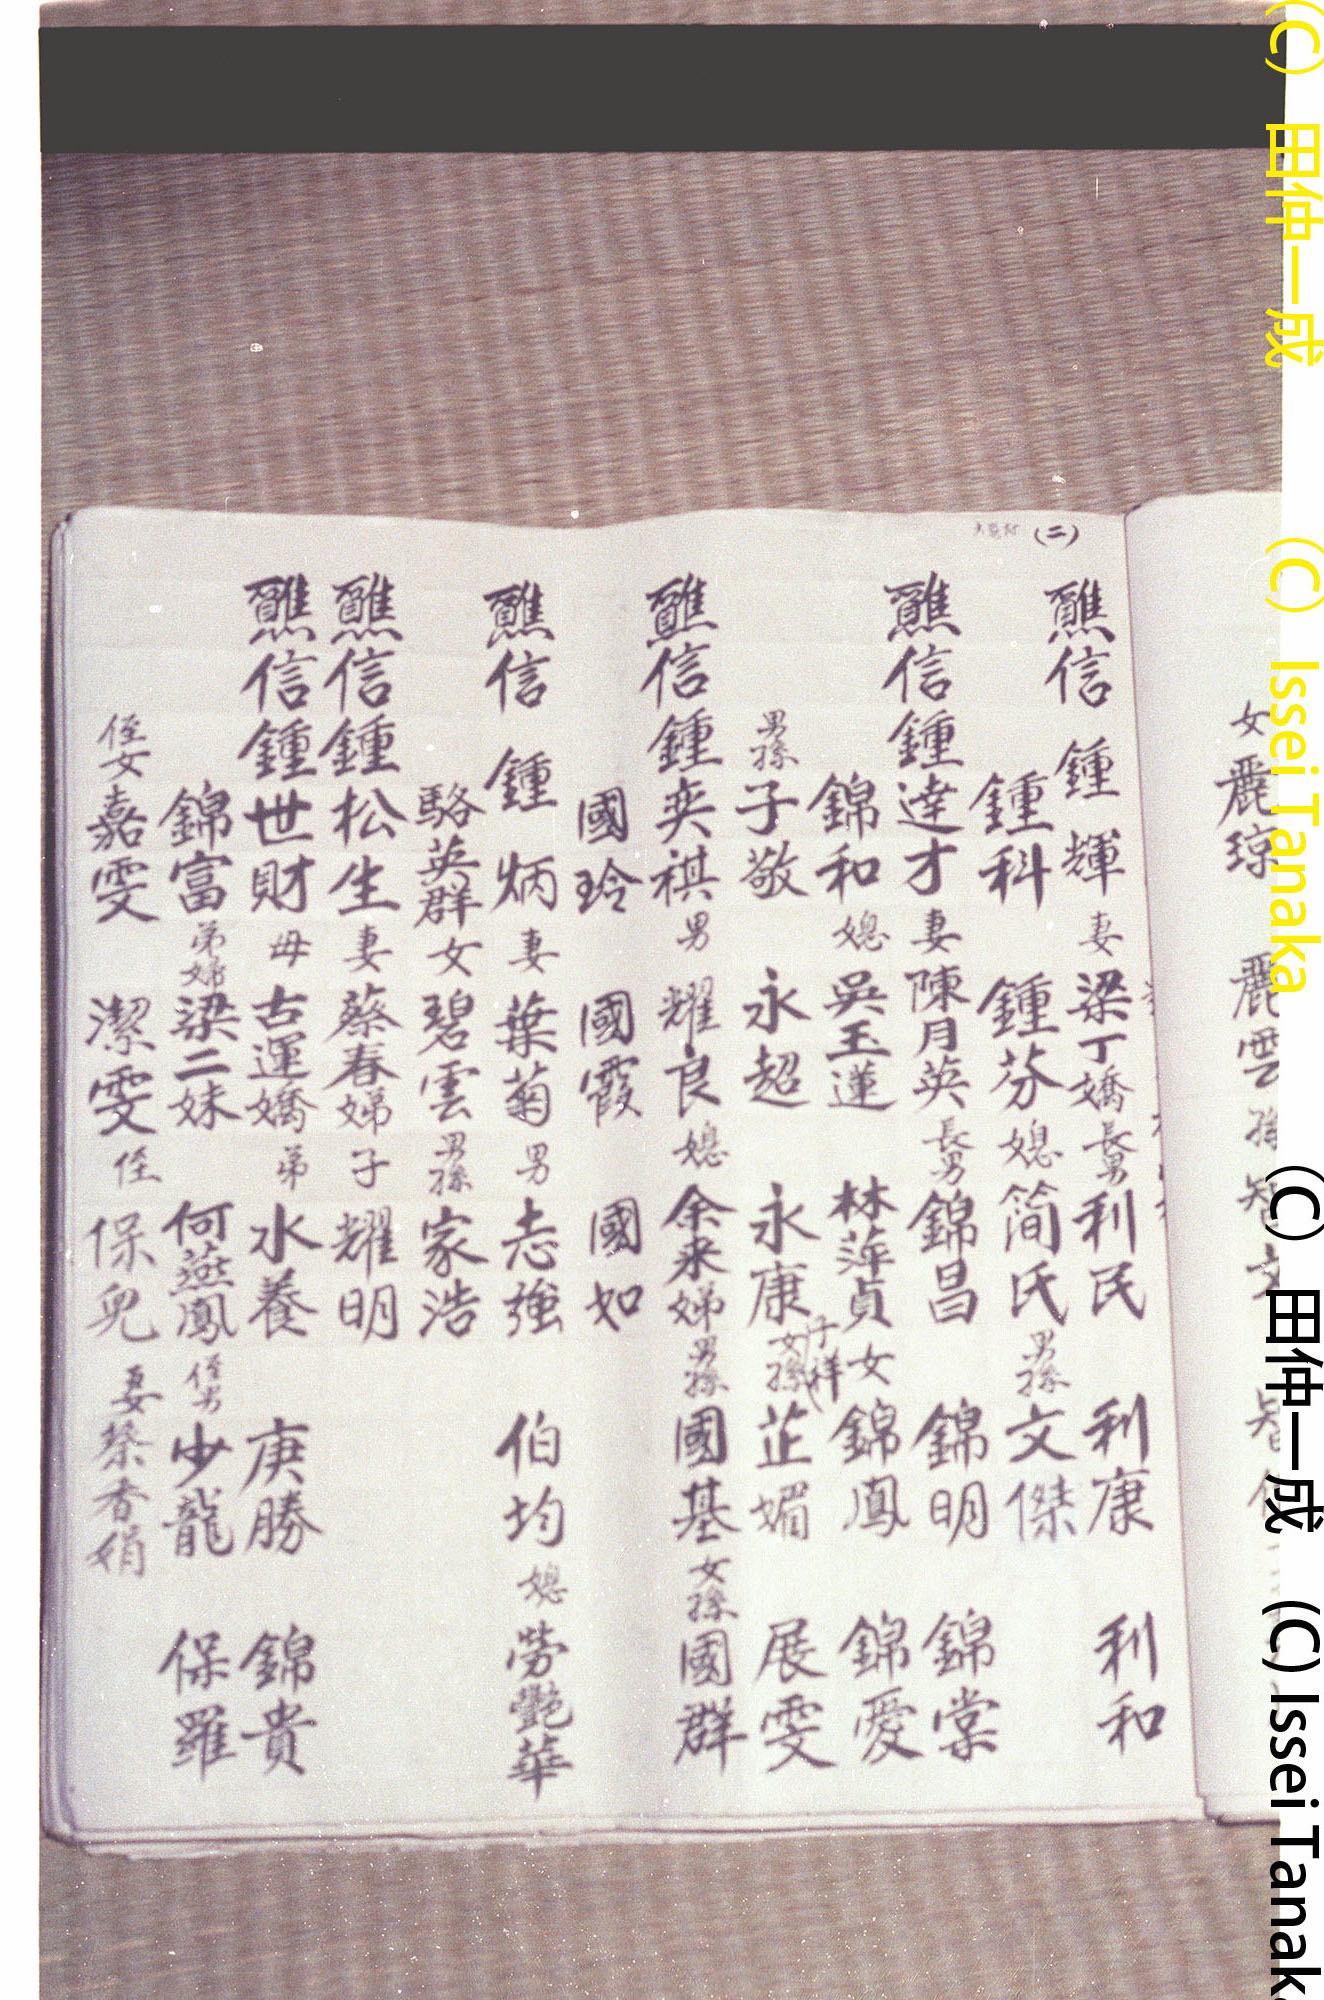 女麗琼 麗雲 孫 智文
(二)
醮信 鍾輝 妻 梁丁嬌 長男 利民 利康 利和
鍾科 鍾芬 媳 简氏 男孫 文傑
醮信 鍾達才 妻 陳月英 長男 錦昌 錦明 錦棠
錦和 媳 吳玉蓮 林萍貞 女 錦鳳 錦愛
男孫 子敬 永超 永康 子祥 女孫 芷媚 展雯
醮信 鍾奕祺 男 耀良 媳 余来娣 男孫 國基 女孫 國群
國玲 國霞 國如
醮信 鍾炳 妻 葉菊 男 志強 伯均 媳 勞艷華
駱英群 女 碧雲 男孫 家浩
醮信 鍾松生 妻 蔡春娣 子 耀明
醮信 鍾世財 母 古運嬌 弟 水養 庚勝 錦貴
錦富 弟婦 梁二妹 何燕鳳 侄男 少龍 保羅
侄女 嘉雯 潔雯 侄 保兒 妻 黎香娟
(C) 田仲一成 (C) Issei Tanaka
(C) 田仲一成 (C) Issei Tanaka